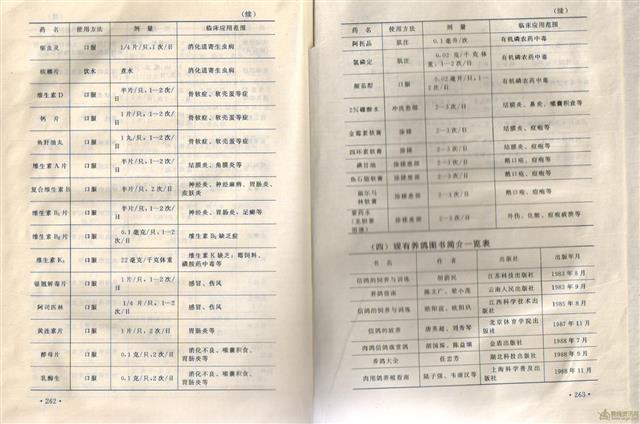 （续）
药 名 使用方法 剂 量 临床应用范围
驱虫灵 口服 1/4片/只，1次/日 消化道寄生虫病
槟榔片 饮水 煮水 消化道寄生虫病
维生素D 口服 半片/只，1—2次/日 骨软症、软壳蛋等症
钙 片 口服 1片/只，1—2次/日 骨软症、软壳蛋等症
鱼肝油丸 口服 1丸/只，1—2次/日 骨软症、软壳蛋等症
维生素A片 口服 半片/只，1—2次/日 结膜炎、角膜炎等
复合维生素B 口服 半片/只，2次/日 神经炎、神经麻痹、胃肠炎、皮肤炎
维生素B₁片 口服 半片/只，1—2次/日 神经炎、胃肠炎；足癣等
维生素B₂片 口服 0.1毫克/只，1—2次/日 维生素B₂缺乏症
维生素K₃ 口服 22毫克/千克体重 维生素K缺乏；霉饲料、磺胺药中毒等
银翘解毒片 口服 1片/只，1—2次/日 感冒、伤风
阿司匹林 口服 1/4片/只，1—2次/日 感冒、伤风
黄连素片 口服 1片/只，2次/日 胃肠炎等
酵母片 口服 0.1克/只，2次/日 消化不良、嗉囊积食、胃肠炎等
乳酶生 口服 0.1克/只，2次/日 消化不良、嗉囊积食、胃肠炎等
·262·
（续）
药 名 使用方法 剂 量 临床应用范围
阿托品 肌注 0.1毫升/次 有机磷农药中毒
氯磷定 肌注 0.02克/千克体重，1—2次/日 有机磷农药中毒
颠茄酊 口服 0.02毫升/只，1—2次/日 有机磷农药中毒
2%硼酸水 冲洗患部 2—3次/日 结膜炎、鼻炎、嗉囊积食等
金霉素软膏 涂搽 2—3次/日 结膜炎、痘疱等
四环素软膏 涂搽 2—3次/日 结膜炎、痘疱等
碘甘油 涂搽患部 2—3次/日 鹅口疮、痘疱等
鱼石脂软膏 涂搽患部 2—3次/日 鹅口疮、痘疱等
福尔马林软膏 涂搽患部 2—3次/日 鹅口疮、痘疱等
紫药水 涂搽患部 2—3次/日 外伤、痘疱破溃等
（四）现有养鸽图书简介一览表
书 名 作 者 出版社 出版年月
信鸽的饲养与训练 江苏科技出版社 1983年8月
养鸽指南 陈文广、梁小茂 云南人民出版社 1983年9月
信鸽的饲养与训练 欧阳玖 江西科学技术出版社 1985年8月
信鸽的培育 唐英超、刘秀琴 北京体育学院出版社 1987年11月
肉鸽信鸽观赏鸽 胡国琛、陈益填 金盾出版社 1988年7月
养鸽大全 任宏芳 湖北科技出版社 1988年9月
肉用鸽养殖指南 陆子强、韦颂汉等 上海科学普及出版社 1988年11月
·263·